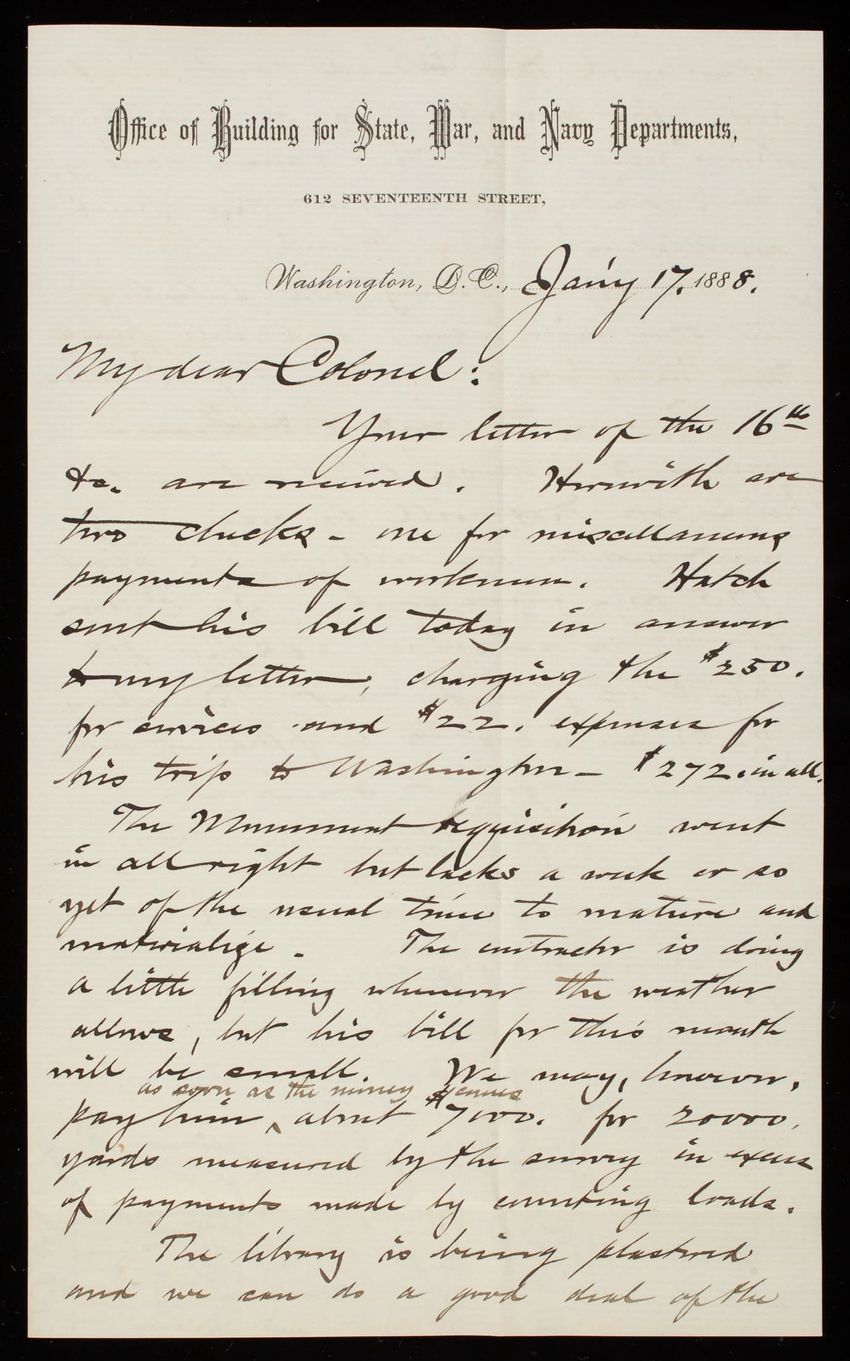 Office of Building for State, War, and Navy Departments,
612 SEVENTEENTH STREET,
Washington, D.C., Jan'y 17. 1888.
My dear Colonel:
Your letter of the 16th
&c. are received. Herewith are
two checks - one for miscellaneous
payments of workmen. Hatch
sent his bill today in answer
to my letter, charging the $250.
for services and $22. expenses for
his trip to Washington - $272. in all.
The Monument requisition went
in all right but lacks a week or so
yet of the usual time to mature and
materialize. The contractor is doing
a little filling whenever the weather
allows, but his bill for this month
will be small. We may, however,
as soon as the money comes
pay him ^ about $7000. for 20000.
yards measured by the survey in excess
of payments made by counting loads.
The library is being plastered
and we can do a good deal of the